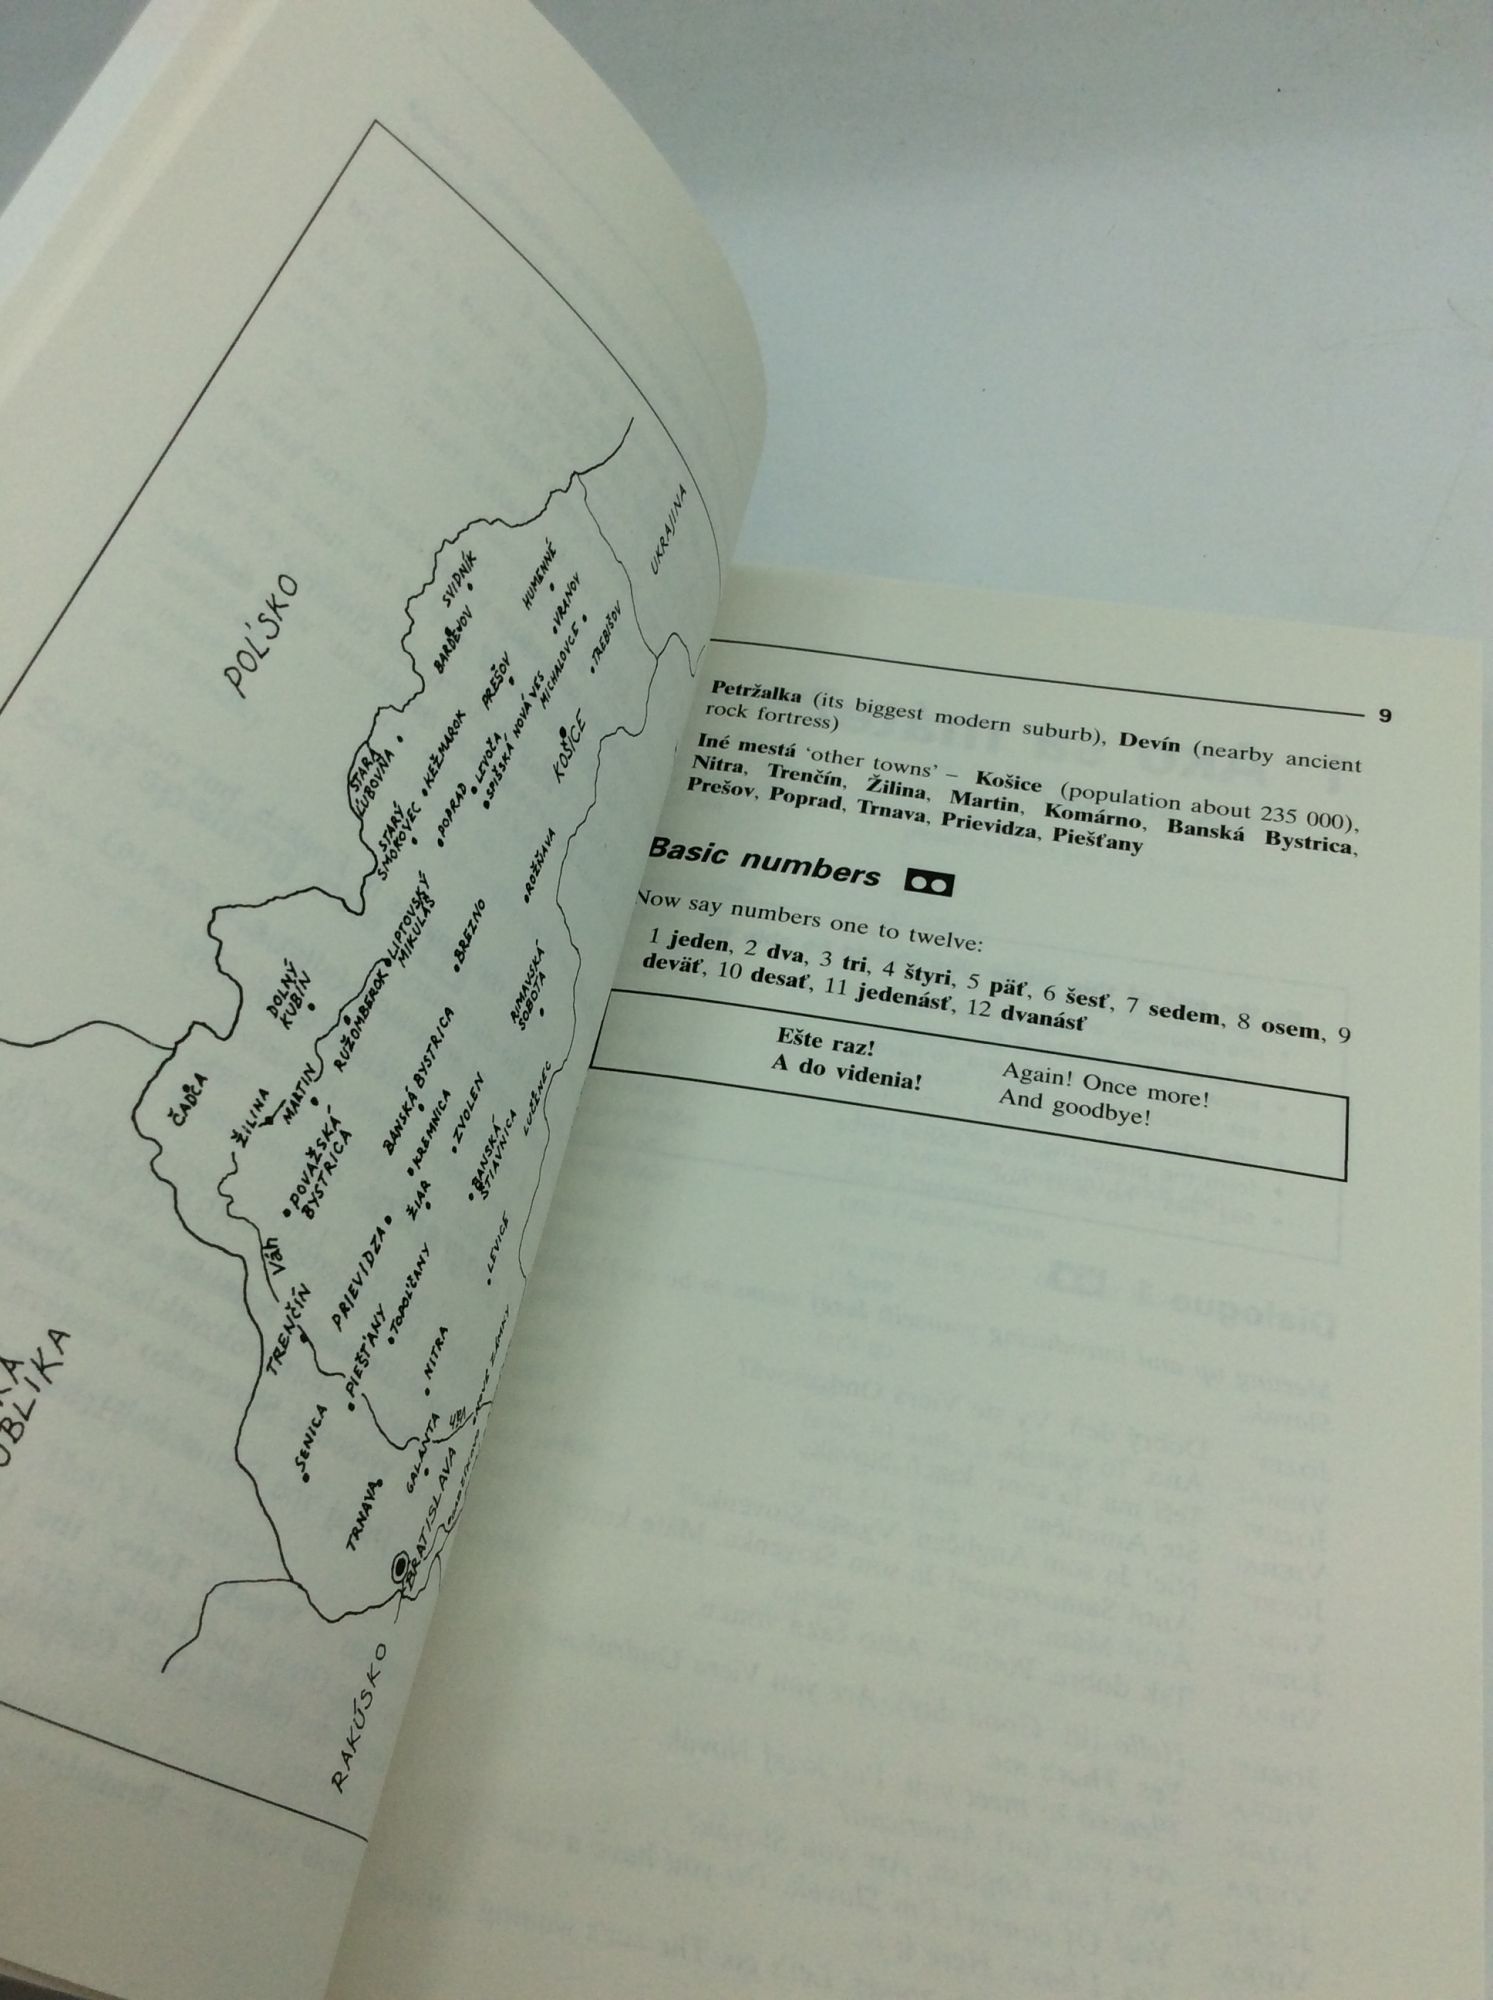 POĽSKO
UKRAJINA
SVIDNÍK
BARDEJOV
HUMENNÉ
VRANOV
MICHALOVCE
TREBIŠOV
PREŠOV
KOŠICE
STARÁ
ĽUBOVŇA
KEŽMAROK
LEVOČA
SPIŠSKÁ NOVÁ VES
POPRAD
STARÝ
SMOKOVEC
ROŽŇAVA
LIPTOVSKÝ
MIKULÁŠ
BREZNO
RIMAVSKÁ
SOBOTA
DOLNÝ
KUBÍN
RUŽOMBEROK
ČADČA
ŽILINA
MARTIN
BANSKÁ BYSTRICA
KREMNICA
ZVOLEN
LUČENEC
POVAŽSKÁ
BYSTRICA
BANSKÁ
ŠTIAVNICA
ŽIAR
PRIEVIDZA
LEVICE
Váh
TRENČÍN
TOPOĽČANY
PIEŠŤANY
NITRA
NOVÉ ZÁMKY
SENICA
GALANTA
TRNAVA
BRATISLAVA
RAKÚSKO
9
Petržalka (its biggest modern suburb), Devín (nearby ancient
rock fortress)
Iné mestá ‘other towns’ – Košice (population about 235 000),
Nitra, Trenčín, Žilina, Martin, Komárno, Banská Bystrica,
Prešov, Poprad, Trnava, Prievidza, Piešťany
Basic numbers
Now say numbers one to twelve:
1 jeden, 2 dva, 3 tri, 4 štyri, 5 päť, 6 šesť, 7 sedem, 8 osem, 9
deväť, 10 desať, 11 jedenásť, 12 dvanásť
Ešte raz! Again! Once more!
A do videnia! And goodbye!